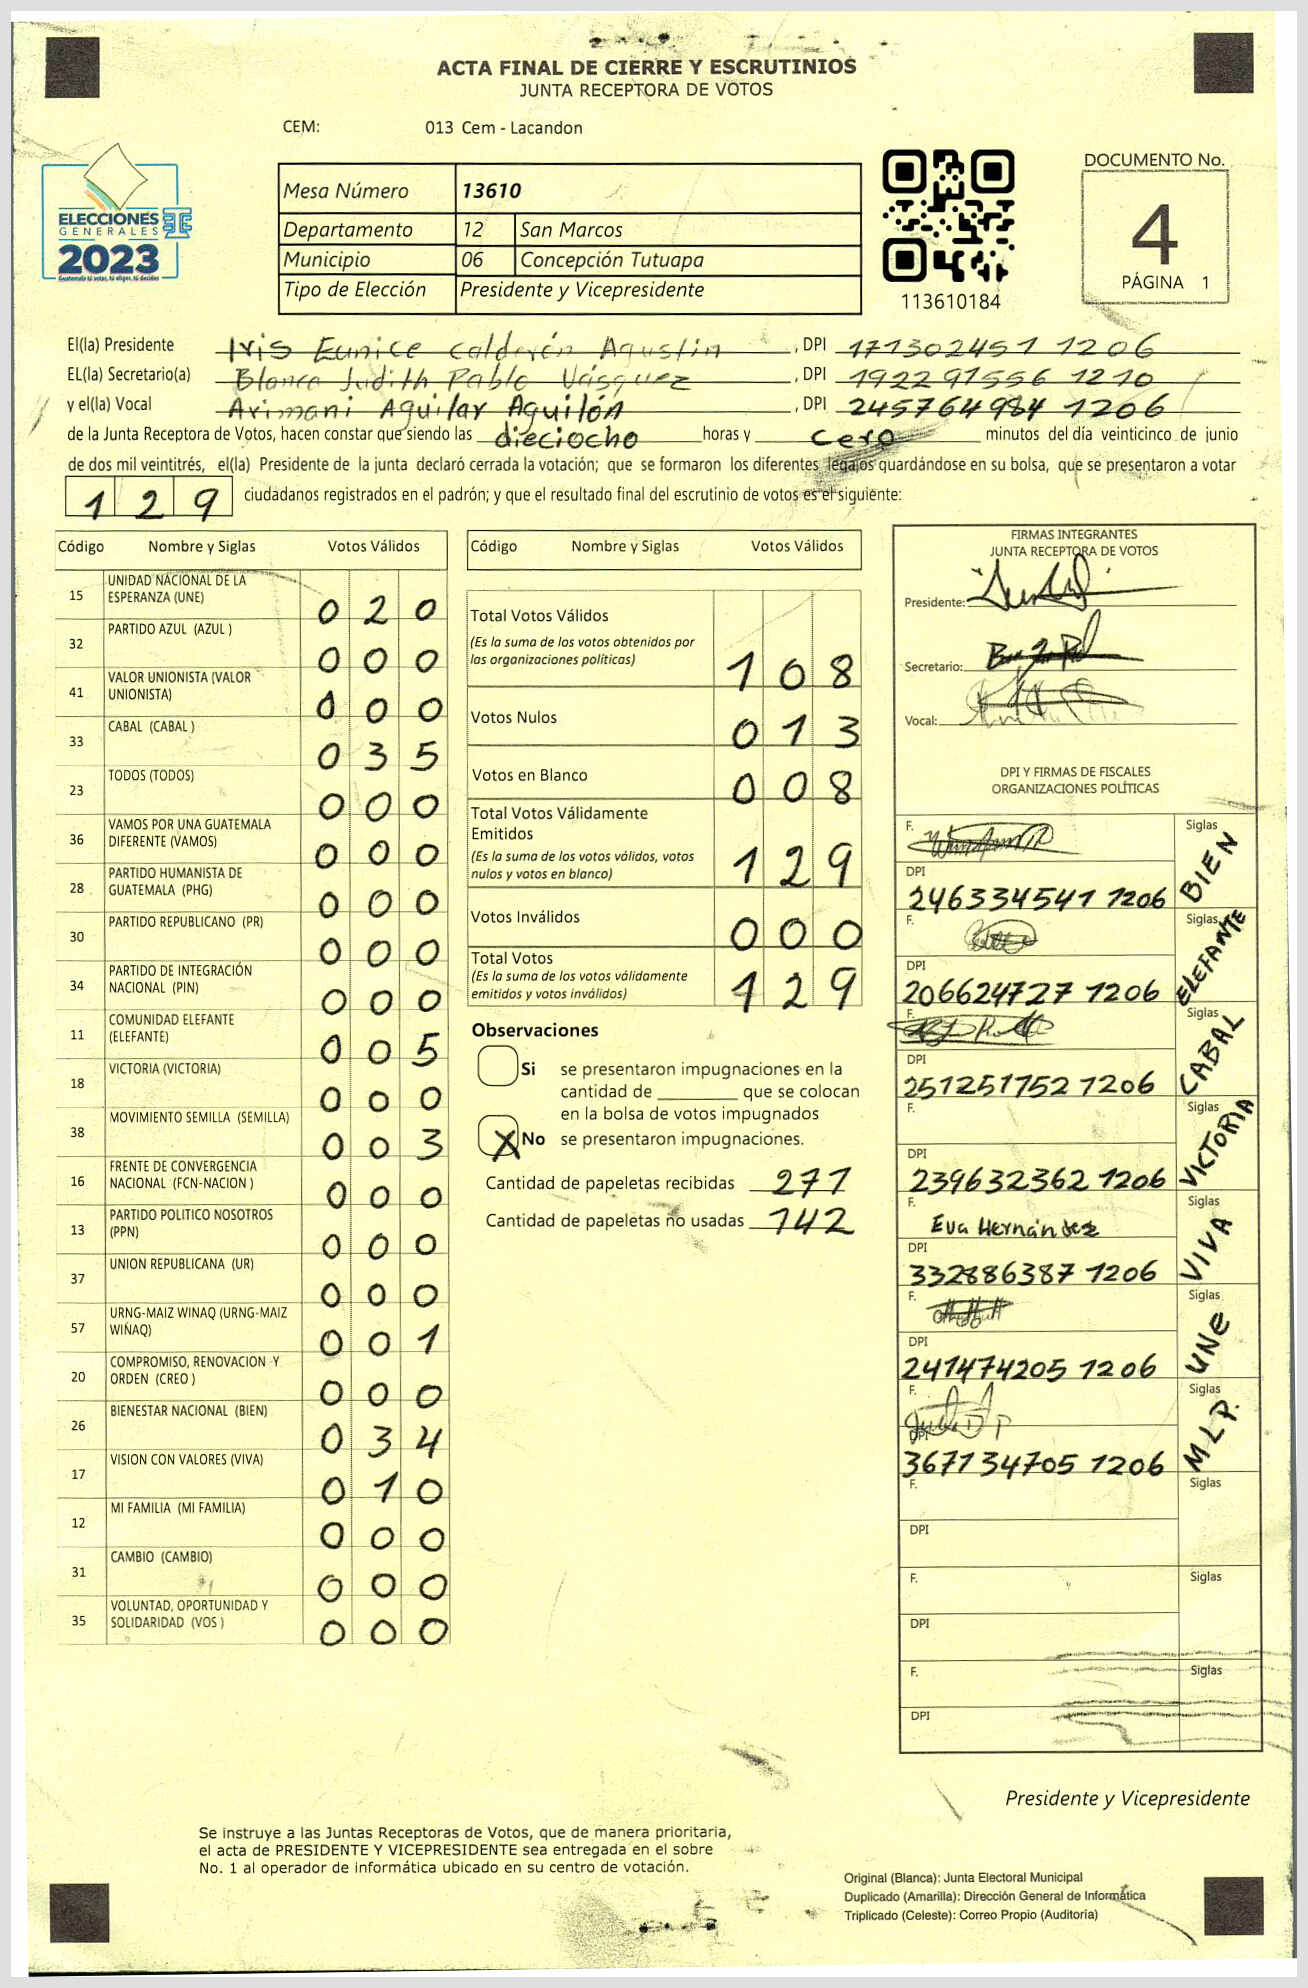 ACTA FINAL DE CIERRE Y ESCRUTINIOS
JUNTA RECEPTORA DE VOTOS
CEM: 013 Cem - Lacandon
ELECCIONES
GENERALES
2023
Guatemala tú votas, tú eliges, tú decides
Mesa Número 13610
Departamento 12 San Marcos
Municipio 06 Concepción Tutuapa
Tipo de Elección Presidente y Vicepresidente
113610184
DOCUMENTO No.
4
PÁGINA 1
El(la) Presidente Iris Eunice Calderón Agustin , DPI 171302451 1206
EL(la) Secretario(a) Blanca Judith Pablo Vásquez , DPI 192291556 1210
y el(la) Vocal Arimani Aguilar Aguilón , DPI 245764984 1206
de la Junta Receptora de Votos, hacen constar que siendo las dieciocho horas y cero minutos del día veinticinco de junio
de dos mil veintitrés, el(la) Presidente de la junta declaró cerrada la votación; que se formaron los diferentes legajos guardándose en su bolsa, que se presentaron a votar
129 ciudadanos registrados en el padrón; y que el resultado final del escrutinio de votos es el siguiente:
Código Nombre y Siglas Votos Válidos
15 UNIDAD NACIONAL DE LA ESPERANZA (UNE) 0 2 0
32 PARTIDO AZUL (AZUL ) 0 0 0
41 VALOR UNIONISTA (VALOR UNIONISTA) 0 0 0
33 CABAL (CABAL ) 0 3 5
23 TODOS (TODOS) 0 0 0
36 VAMOS POR UNA GUATEMALA DIFERENTE (VAMOS) 0 0 0
28 PARTIDO HUMANISTA DE GUATEMALA (PHG) 0 0 0
30 PARTIDO REPUBLICANO (PR) 0 0 0
34 PARTIDO DE INTEGRACIÓN NACIONAL (PIN) 0 0 0
11 COMUNIDAD ELEFANTE (ELEFANTE) 0 0 5
18 VICTORIA (VICTORIA) 0 0 0
38 MOVIMIENTO SEMILLA (SEMILLA) 0 0 3
16 FRENTE DE CONVERGENCIA NACIONAL (FCN-NACION ) 0 0 0
13 PARTIDO POLITICO NOSOTROS (PPN) 0 0 0
37 UNION REPUBLICANA (UR) 0 0 0
57 URNG-MAIZ WINAQ (URNG-MAIZ WINAQ) 0 0 1
20 COMPROMISO, RENOVACION Y ORDEN (CREO ) 0 0 0
26 BIENESTAR NACIONAL (BIEN) 0 3 4
17 VISION CON VALORES (VIVA) 0 1 0
12 MI FAMILIA (MI FAMILIA) 0 0 0
31 CAMBIO (CAMBIO) 0 0 0
35 VOLUNTAD, OPORTUNIDAD Y SOLIDARIDAD (VOS ) 0 0 0
Código Nombre y Siglas Votos Válidos
Total Votos Válidos
(Es la suma de los votos obtenidos por
las organizaciones políticas) 1 0 8
Votos Nulos 0 1 3
Votos en Blanco 0 0 8
Total Votos Válidamente
Emitidos
(Es la suma de los votos válidos, votos
nulos y votos en blanco) 1 2 9
Votos Inválidos 0 0 0
Total Votos
(Es la suma de los votos válidamente
emitidos y votos inválidos) 1 2 9
Observaciones
Si se presentaron impugnaciones en la
cantidad de ________ que se colocan
en la bolsa de votos impugnados
X No se presentaron impugnaciones.
Cantidad de papeletas recibidas 271
Cantidad de papeletas no usadas 142
FIRMAS INTEGRANTES
JUNTA RECEPTORA DE VOTOS
Presidente:
Secretario:
Vocal:
DPI Y FIRMAS DE FISCALES
ORGANIZACIONES POLÍTICAS
F. Siglas BIEN
DPI
246334541 1206
F. Siglas ELEFANTE
DPI
206624727 1206
F. Siglas CABAL
DPI
251251752 1206
F. Siglas VICTORIA
DPI
239632362 1206
F. Eva Hernández Siglas VIVA
DPI
332886387 1206
F. Siglas UNE
DPI
241474205 1206
F. Siglas MLP.
DPI
367134705 1206
F. Siglas
DPI
F. Siglas
DPI
F. Siglas
DPI
Presidente y Vicepresidente
Se instruye a las Juntas Receptoras de Votos, que de manera prioritaria,
el acta de PRESIDENTE Y VICEPRESIDENTE sea entregada en el sobre
No. 1 al operador de informática ubicado en su centro de votación.
Original (Blanca): Junta Electoral Municipal
Duplicado (Amarilla): Dirección General de Informática
Triplicado (Celeste): Correo Propio (Auditoría)